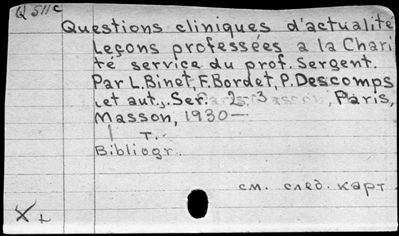 Q 511c
Questions cliniques d'actualité
Leçons professées a la Chari
té service du prof. Sergent.
Par L. Binet, F. Bordet, P. Descomps
,et aut., Ser. 2-3, Paris,
Masson, 1930—
T.
Bibliogr.
см. след. карт.